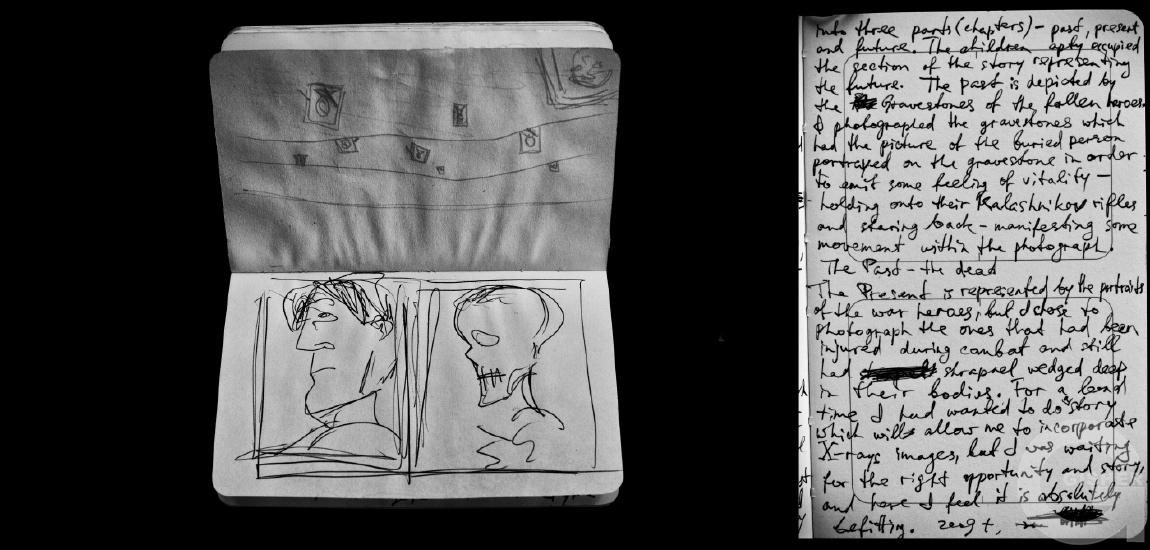 into three parts (chapters) - past, present
and future. The children aptly occupied
the section of the story representing
the future. The past is depicted by
the gravestones of the fallen heroes.
I photographed the gravestones which
had the picture of the buried person
portrayed on the gravestone in order
to emit some feeling of vitality -
holding onto their Kalashnikov rifles
and staring back - manifesting some
movement within the photograph.
The Past - the dead
The Present is represented by the portraits
of the war heroes, but I chose to
photograph the ones that had been
injured during combat and still
had shrapnel wedged deep
in their bodies. For a long
time I had wanted to do a story
which will allow me to incorporate
X-rays images, but I was waiting
for the right opportunity and story,
and here I feel it is absolutely
befitting.